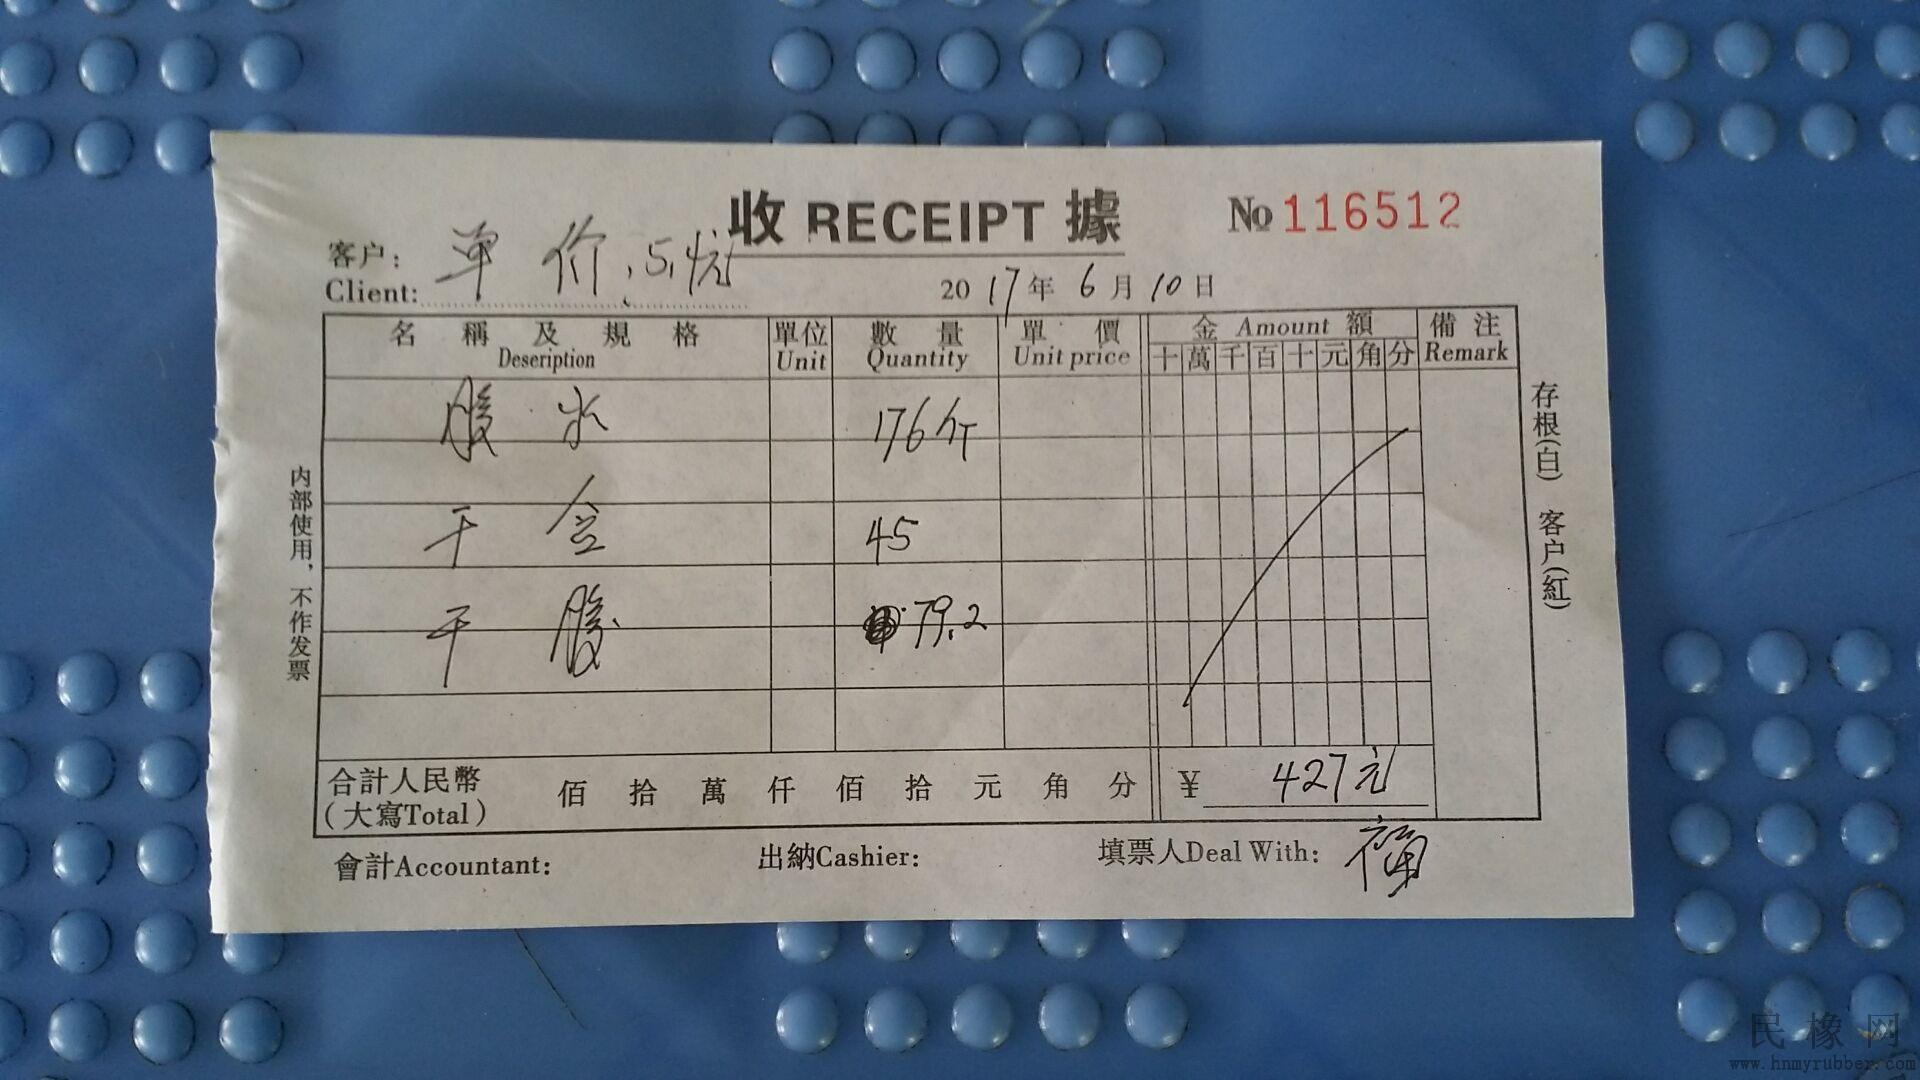 收 RECEIPT 據
No 116512
客户: 单价.5.4元
Client:
2017年6月10日
名稱及規格 單位 數量 單價 金 Amount 額 備注
Deseription Unit Quantity Unit price 十萬千百十元角分 Remark
胶水 176斤
干含 45
干胶 79.2
合計人民幣 佰拾萬仟佰拾元角分 ¥ 427元
(大寫Total)
會計Accountant: 出納Cashier: 填票人Deal With:
内部使用，不作发票
存根(白) 客户(紅)
民橡网
www.hnmyrubber.com